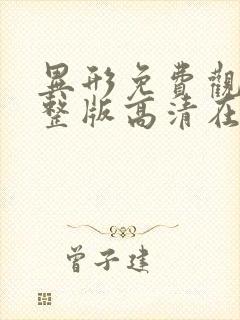 異形免費觀
整版高清在
曾子建